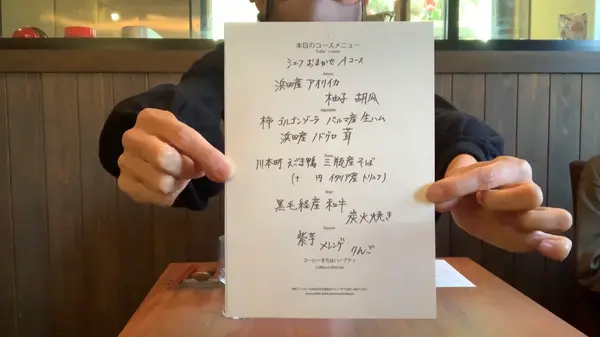 本日のコースメニュー
Today's course
シェフ おまかせ Aコース
浜田産 アオリイカ
柚子 胡瓜
柿 ゴルゴンゾーラ パルマ産 生ハム
浜田産 ノドグロ 茸
川本町 えごま鴨 三瓶産 そば
(+ 円 イタリア産 トリュフ)
黒毛経産 和牛
炭火焼き
Dessert
紫芋 メレンゲ りんご
コーヒーまたはハーブティ